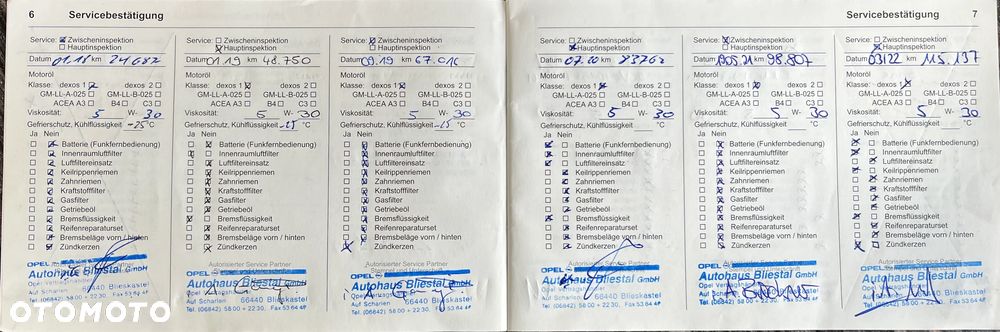 6 Servicebestätigung
Service: Zwischeninspektion
Hauptinspektion
Datum 01.18 km 24682
Motoröl
Klasse: dexos 1 dexos 2
GM-LL-A-025 GM-LL-B-025
ACEA A3 B4 C3
Viskosität: 5 W- 30
Gefrierschutz, Kühlflüssigkeit -25 °C
Ja Nein
Batterie (Funkfernbedienung)
Innenraumluftfilter
Luftfiltereinsatz
Keilrippenriemen
Zahnriemen
Kraftstofffilter
Gasfilter
Getriebeöl
Bremsflüssigkeit
Reifenreparaturset
Bremsbeläge vorn / hinten
Zündkerzen
OPEL
Autohaus Bliestal GmbH
Opel Vertragshändler
Auf Scharlen 66440 Blieskastel
Tel. (06842) 5800 + 2230, Fax 5364
Service: Zwischeninspektion
Hauptinspektion
Datum 01.19 km 48.750
Motoröl
Klasse: dexos 1 dexos 2
GM-LL-A-025 GM-LL-B-025
ACEA A3 B4 C3
Viskosität: 5 W- 30
Gefrierschutz, Kühlflüssigkeit °C
Ja Nein
Batterie (Funkfernbedienung)
Innenraumluftfilter
Luftfiltereinsatz
Keilrippenriemen
Zahnriemen
Kraftstofffilter
Gasfilter
Getriebeöl
Bremsflüssigkeit
Reifenreparaturset
Bremsbeläge vorn / hinten
Zündkerzen
Autorisierter Service Partner
OPEL
Autohaus Bliestal GmbH
Auf Scharlen 66440 Blieskastel
Service: Zwischeninspektion
Hauptinspektion
Datum 09.19 km 67.016
Motoröl
Klasse: dexos 1 dexos 2
GM-LL-A-025 GM-LL-B-025
ACEA A3 B4 C3
Viskosität: 5 W- 30
Gefrierschutz, Kühlflüssigkeit °C
Ja Nein
Batterie (Funkfernbedienung)
Innenraumluftfilter
Luftfiltereinsatz
Keilrippenriemen
Zahnriemen
Kraftstofffilter
Gasfilter
Getriebeöl
Bremsflüssigkeit
Reifenreparaturset
Bremsbeläge vorn / hinten
Zündkerzen
Autorisierter Service Partner
OPEL
Autohaus Bliestal GmbH
Auf Scharlen 66440 Blieskastel
Servicebestätigung 7
Service: Zwischeninspektion
Hauptinspektion
Datum 07.20 km
Motoröl
Klasse: dexos 1 dexos 2
GM-LL-A-025 GM-LL-B-025
ACEA A3 B4 C3
Viskosität: 5 W- 30
Gefrierschutz, Kühlflüssigkeit °C
Ja Nein
Batterie (Funkfernbedienung)
Innenraumluftfilter
Luftfiltereinsatz
Keilrippenriemen
Zahnriemen
Kraftstofffilter
Gasfilter
Getriebeöl
Bremsflüssigkeit
Reifenreparaturset
Bremsbeläge vorn / hinten
Zündkerzen
Autorisierter Service Partner
OPEL
Autohaus Bliestal GmbH
Opel Vertragshändler
Auf Scharlen 66440 Blieskastel
Service: Zwischeninspektion
Hauptinspektion
Datum km 98.807
Motoröl
Klasse: dexos 1 dexos 2
GM-LL-A-025 GM-LL-B-025
ACEA A3 B4 C3
Viskosität: 5 W- 30
Gefrierschutz, Kühlflüssigkeit °C
Ja Nein
Batterie (Funkfernbedienung)
Innenraumluftfilter
Luftfiltereinsatz
Keilrippenriemen
Zahnriemen
Kraftstofffilter
Gasfilter
Getriebeöl
Bremsflüssigkeit
Reifenreparaturset
Bremsbeläge vorn / hinten
Zündkerzen
Autorisierter Service Partner
OPEL
Autohaus Bliestal GmbH
Auf Scharlen 66440 Blieskastel
Service: Zwischeninspektion
Hauptinspektion
Datum 03/22 km 115.137
Motoröl
Klasse: dexos 1 dexos 2
GM-LL-A-025 GM-LL-B-025
ACEA A3 B4 C3
Viskosität: 5 W- 30
Gefrierschutz, Kühlflüssigkeit °C
Ja Nein
Batterie (Funkfernbedienung)
Innenraumluftfilter
Luftfiltereinsatz
Keilrippenriemen
Zahnriemen
Kraftstofffilter
Gasfilter
Getriebeöl
Bremsflüssigkeit
Reifenreparaturset
Bremsbeläge vorn / hinten
Zündkerzen
Autorisierter Service Partner
OPEL
Autohaus Bliestal GmbH
Opel Vertragshändler
Auf Scharlen 66440 Blieskastel
OTOMOTO